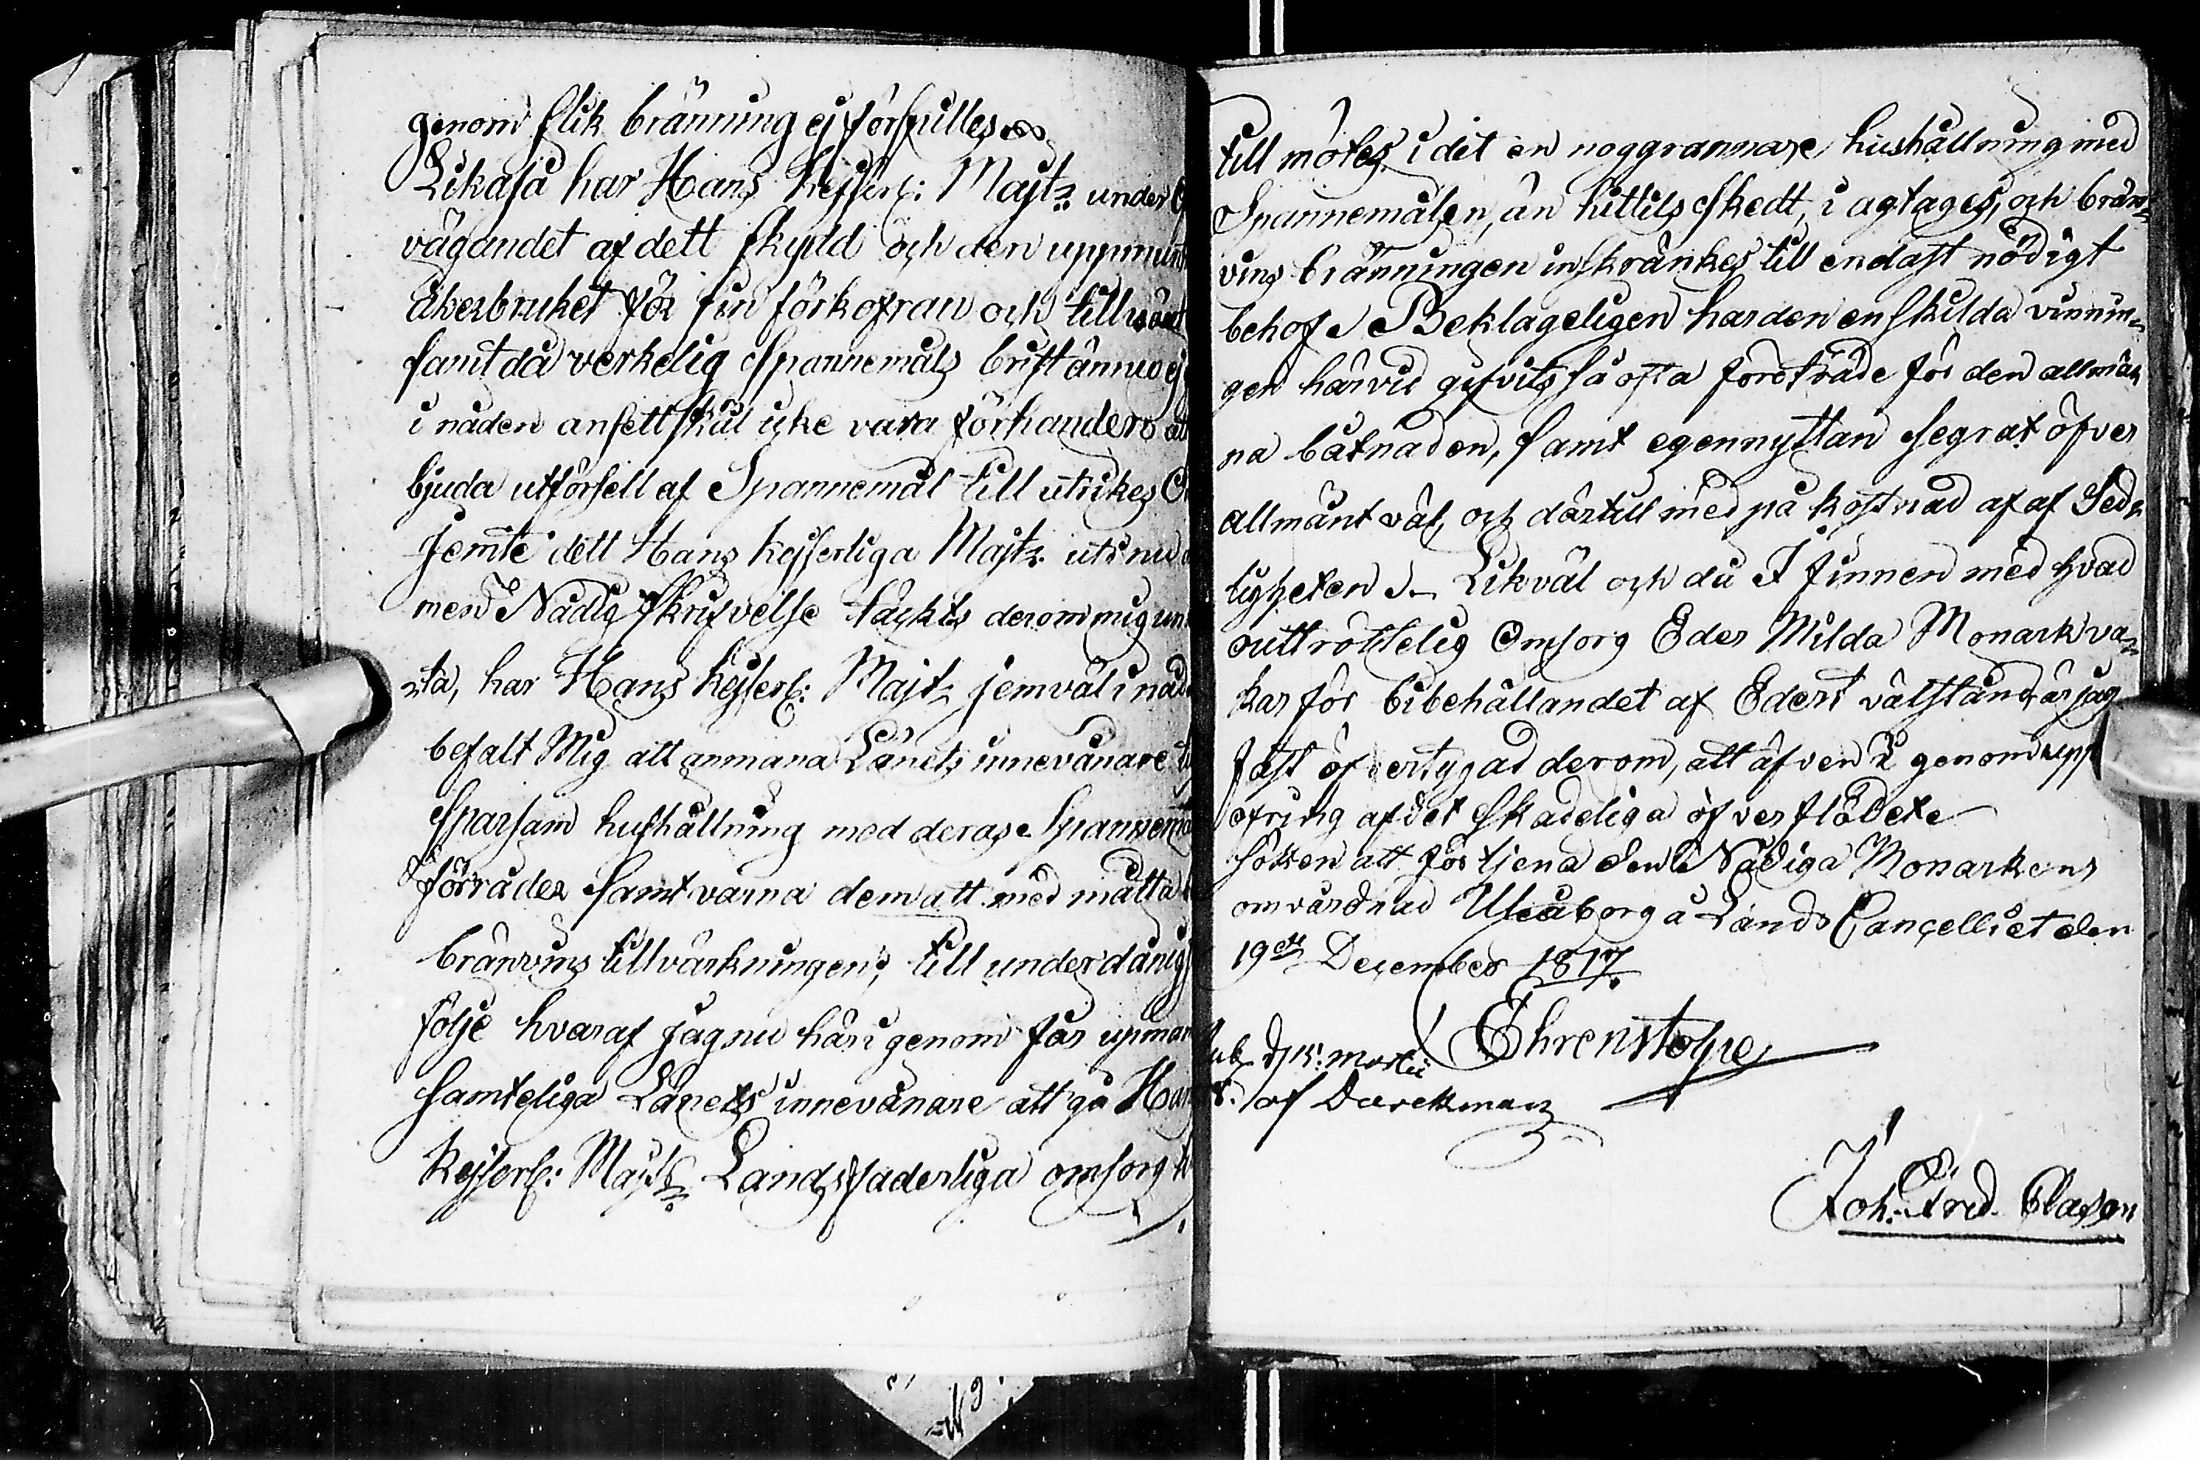 genom slik bränning ej förspilles
Likaså har Hans Kejserl: Majt: under
vägandet af dett skydd och den uppmun
åkerbruket för sin förkofran och tillväxt
samt då verkelig Spannemåls brist ännu ej
i nåden ansett skäl icke vara förhanden
bjuda utförsell af Spannemål till utrikes
Jemte dett Hans kejserliga Majt: uti
men Nådig skrifvelse täckts derom mig un
=ta, har Hans kejserl: Majt: jemväl i nåd
befalt Mig att anmana Länets innevånare
Sparsam hushållning med deras Spannem
förråder samt varna dem att med måtta
bränvins tillvärkningen; till underdånig
följe hvaraf jag nu härigenom får upman
samteliga Länets innevånare att gå Han
Kejserl: Majts Landsfaderliga omsorg
till mötes, i det en noggrannare hushållning med
Spannemålen, än hittils skedt, i agtages, och brän=
vins bränningen inskränkes till endast nödigt
behof. Beklageligen har den enskilda vinnin=
gen härvid gifvits så ofta företräde för den allmän
na båtnaden, samt egennyttan segrat öfver
allmänt väl, och därtill med på kostnad af af Sed=
ligheten. Likväl och då I finnen med hvad
outtröttelig Omsorg Eder Milda Monark va=
kar för bibehållandet af Edert välstånd, är jag
fäst öfvertygad derom, att äfven I genom upp
ofring af det skadeliga öfverflödete
söken att förtjena den Nådiga Monarkens
omvårdnad Uleåborg å Lands Cancelliet den
19de December 1817.
Ehrenstolpe
Pub. d. 15: Martii
af Durchman
Joh. Fred. Clasen